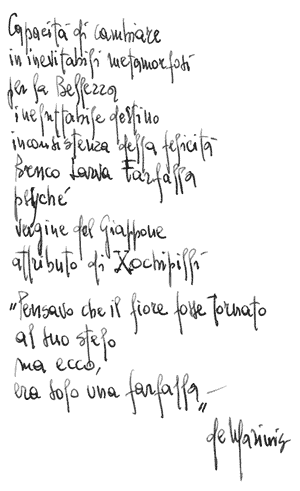 Capacità di cambiare
in inevitabili metamorfosi
per la Bellezza
ineluttabile destino
inconsistenza della felicità
Bruco Larva Farfalla
psyché
vergine del Giappone
attributo di Xochipilli
"Pensavo che il fiore fosse tornato
al suo stelo
ma ecco,
era solo una farfalla"
de Marinis